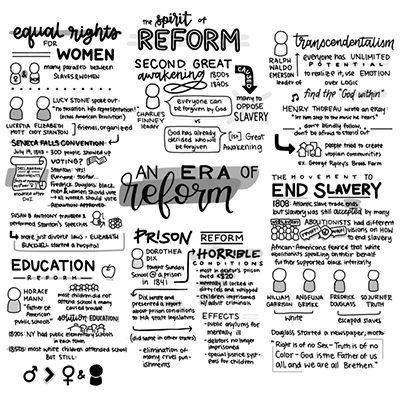 equal rights
FOR
WOMEN
many parallels between
SLAVES & WOMEN
LUCY STONE spoke out:
"No taxation w/o representation!"
(echos American Revolution)
LUCRETIA ELIZABETH
MOTT CADY STANTON
friends, organized
SENECA FALLS CONVENTION
July 19, 1848 - 300 people showed up
VOTING?
Stanton: Yes!
Frederick Douglass: black
men & women should vote
→ all women should vote
Resolutions approved
SUSAN B ANTHONY traveled &
performed Stanton's speeches
more just divorce laws - ELIZABETH
BLACKWELL started a hospital
EDUCATION
REFORM
HORACE
MANN
"Father of
American
public schools"
most children did not
attend school & many
carried trouble
solution = EDUCATION!
1820s: NY had public elementary schools
in each town.
1850s: most white children attended school
BUT STILL:
♂ > ♀ &
the spirit of
REFORM
SECOND GREAT
awakening
1800s
to
1840s
CHARLES
FINNEY
leader
everyone can
be forgiven by God
vs
God has already
decided who will
be forgiven
CALLED
many to
OPPOSE
SLAVERY
[1st] Great
Awakening
AN ERA OF
reform
PRISON REFORM
DOROTHEA
DIX
taught Sunday
School @ a prison
in 1841
HORRIBLE
CONDITIONS
most in debtor's prison
owed <$20
mentally ill locked in
children imprisoned
w/ adult criminals
Dix wrote and
presented a report
about prison conditions
to MA state legislature
(did same in other states)
- elimination of
many cruel pun-
ishments
EFFECTS
- public asylums for
mentally ill
- debtors no longer
imprisoned
- special justice sys-
tems for children
transcendentalism
RALPH
WALDO
EMERSON
leader of
everyone has UNLIMITED
POTENTIAL
to realize it, use EMOTION
over LOGIC
find the "God within"
HENRY THOREAU wrote an essay:
"let him step to the music he hears"
- don't blindly follow,
don't be afraid to stand out
people tried to create
utopian communities
ex. George Ripley's Brook Farm
THE MOVEMENT TO
END SLAVERY
1808: Atlantic slave trade ends
but slavery was still accepted by many
ABOLITIONISTS had different
VISIONS on HOW
to end slavery
African-Americans feared that white
abolitionists speaking on their behalf
further supported black inferiority
WILLIAM
GARRISON
ANGELINA
GRIMKE
FREDRICK
DOUGLASS
SOJOURNER
TRUTH
white
escaped slaves
Douglass started a newspaper, motto:
"Right is of no Sex - Truth is of no
Color - God is the Father of us
all, and we are all Brethren."